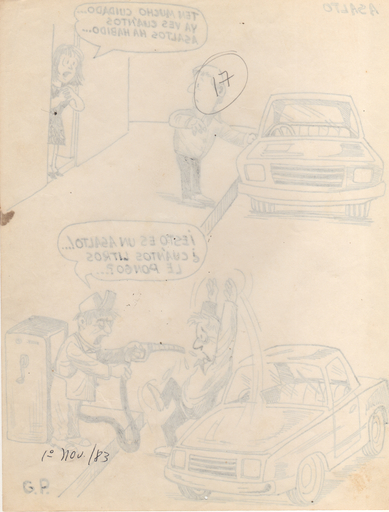 ASALTO
TEN MUCHO CUIDADO...
YA VES CUANTOS
ASALTOS HA HABIDO...
17
¡ESTO ES UN ASALTO!...
¿CUÁNTOS LITROS
LE PONGO?...
1º Nov./83
G.P.